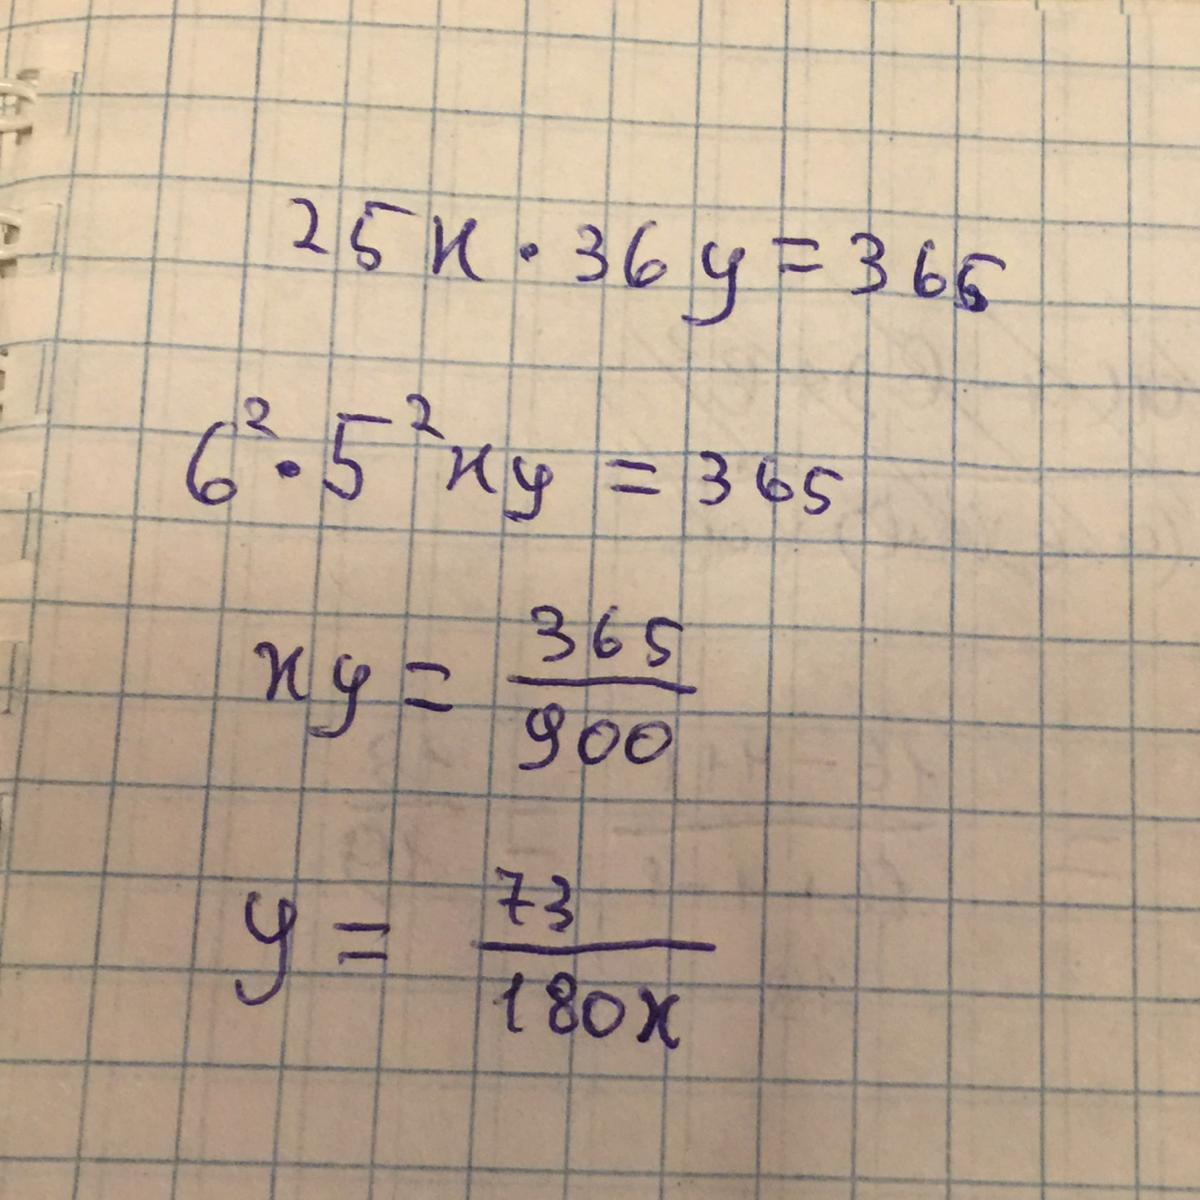 25x · 36y = 365
6² · 5²xy = 365
xy = 365/900
y = 73/180x